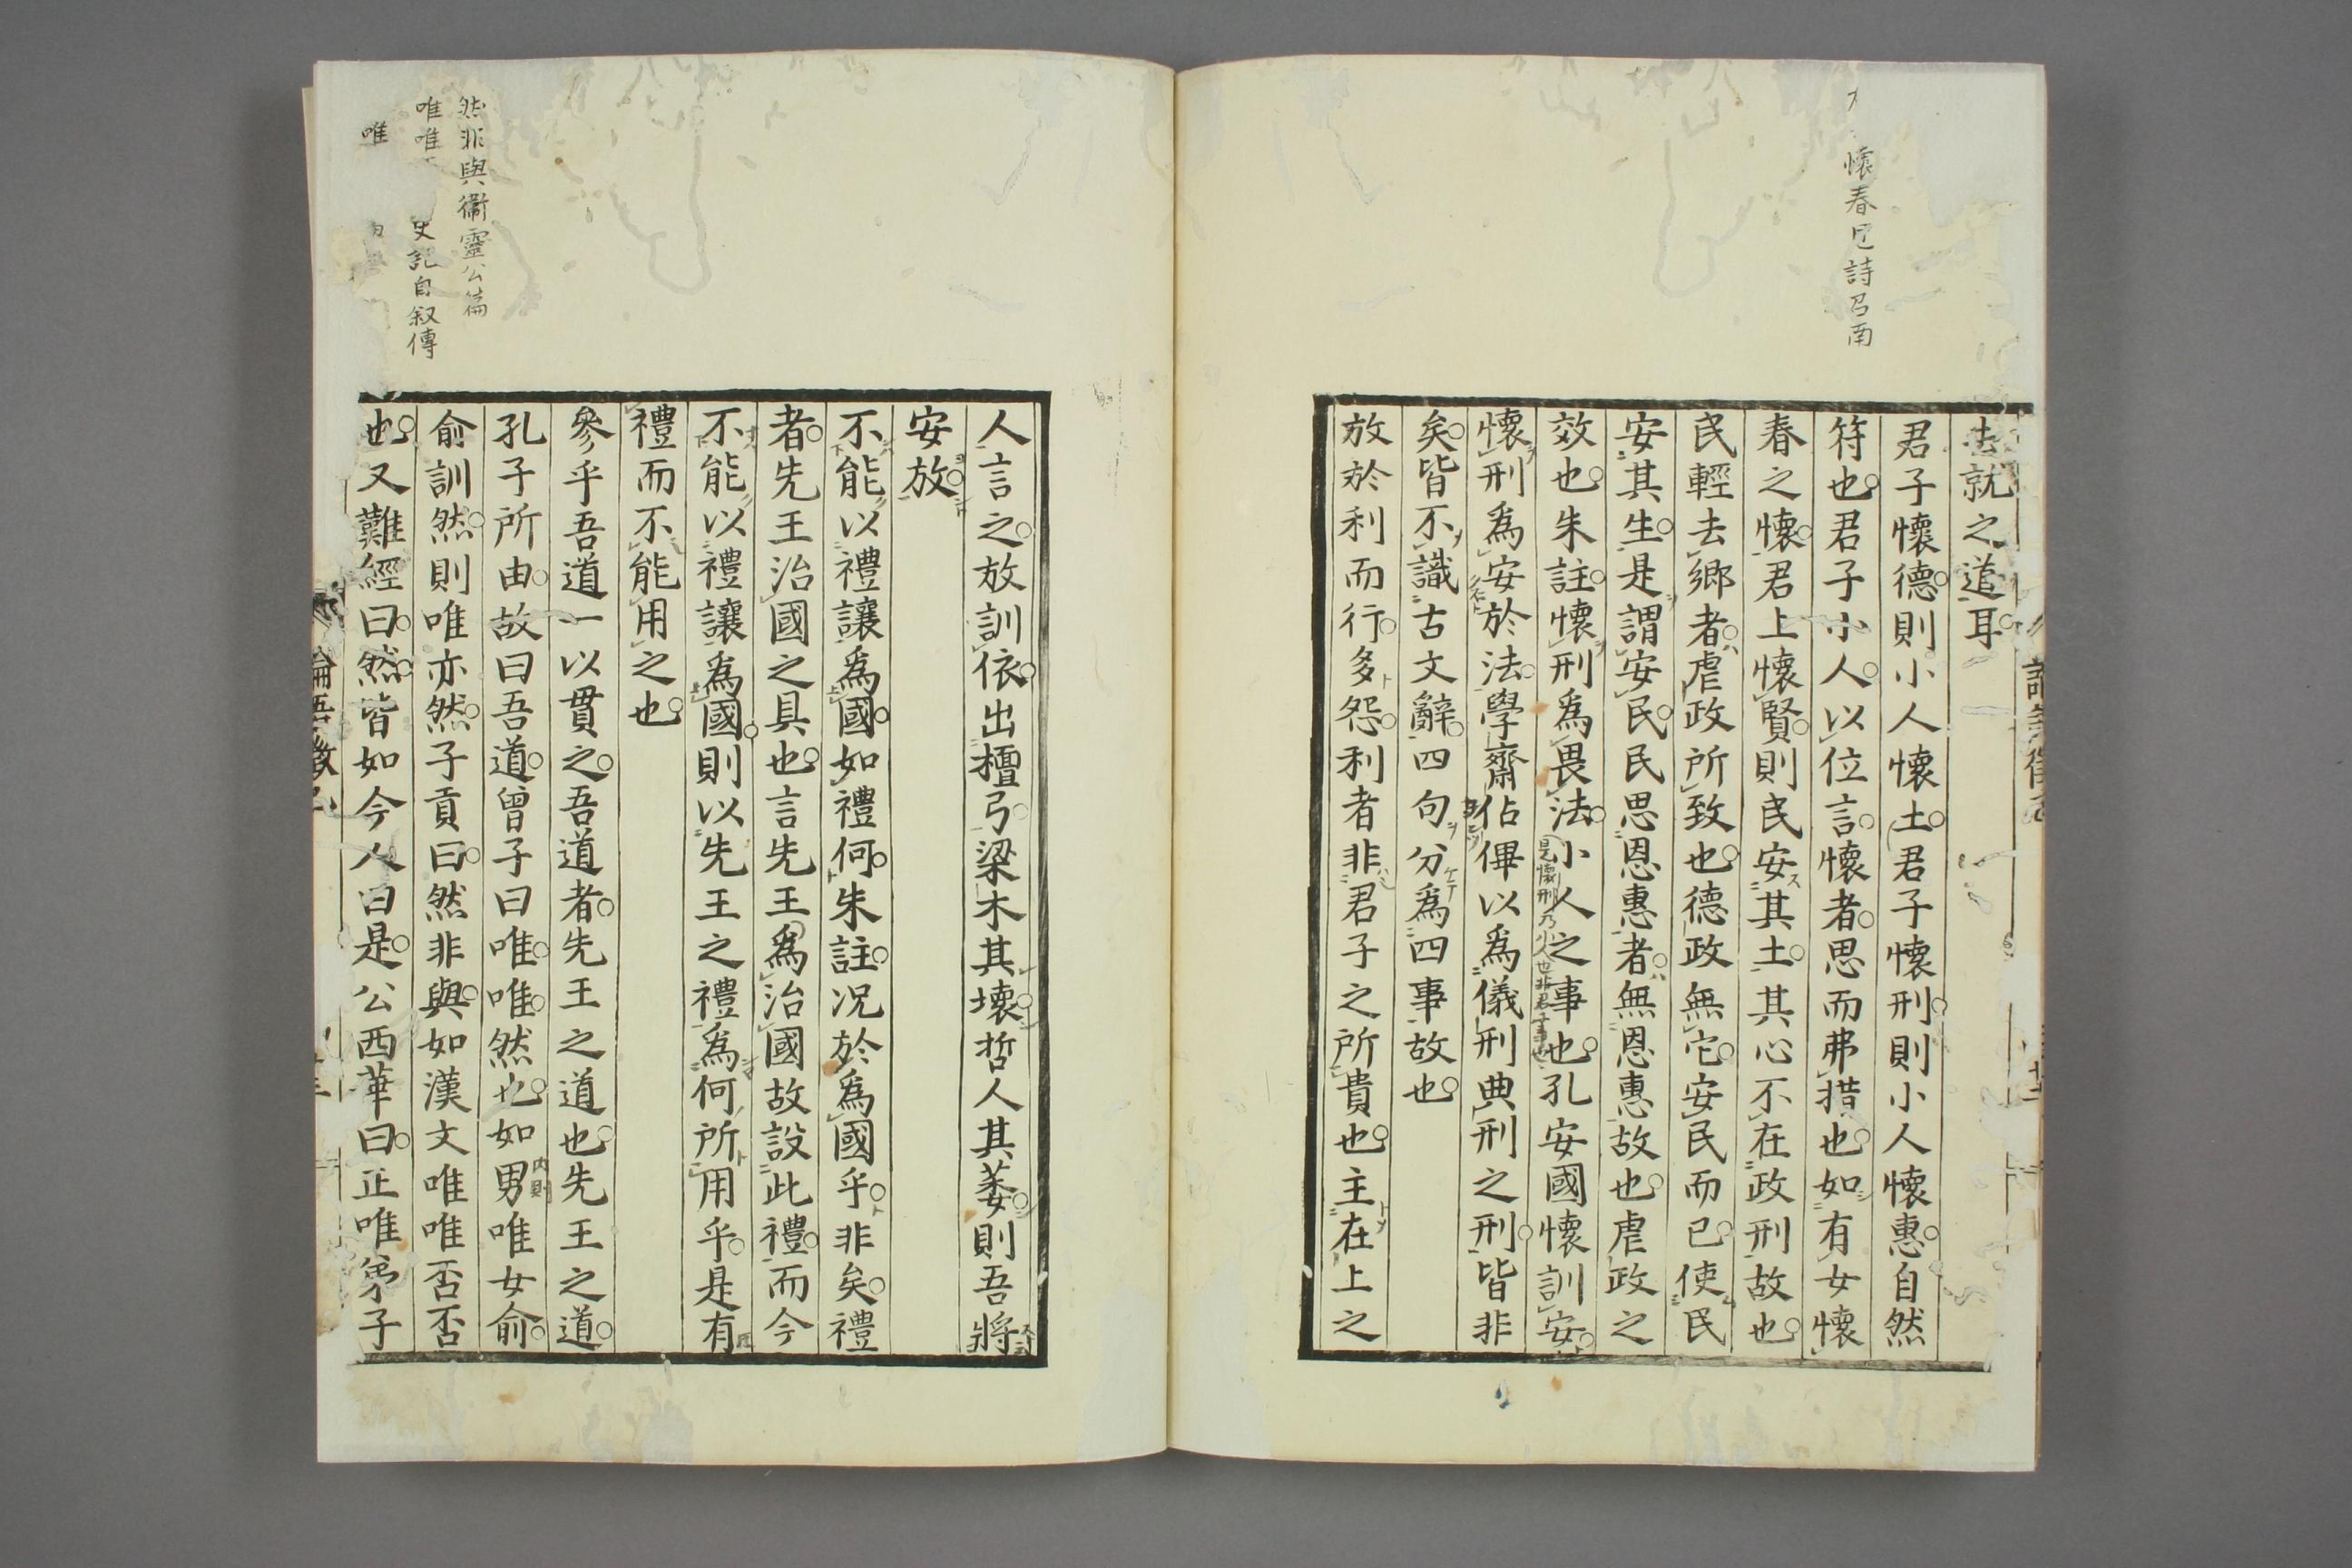 懷春已詩召南
去就之道耳
君子懷德則小人懷土君子懷刑則小人懷惠自然
符也君子小人以位言懷者思而弗措也如有女懷
春之懷君上懷賢則民安其土其心不在政刑故也
民輕去鄉者虐政所致也德政無它安民而已使民
安其生是謂安民民思恩惠者無恩惠故也虐政之
效也朱註懷刑爲畏法小人之事也孔安國懷訓安
是懷刑乃小人也非君子事也
懷刑爲安於法學齋佔俾以爲儀刑典刑之刑皆非
矣皆不識古文辭四句分爲四事故也
放於利而行多怨利者非君子之所貴也主在上之
人言之放訓依出檀弓梁木其壞哲人其萎則吾將
安放
不能以禮讓爲國如禮何朱註况於爲國乎非矣禮
者先王治國之具也言先王爲治國故設此禮而今
不能以禮讓爲國則以先王之禮爲何所用乎是有
禮而不能用之也
參乎吾道一以貫之吾道者先王之道也先王之道
孔子所由故曰吾道曾子曰唯唯然也如男唯女俞
内則
俞訓然則唯亦然子貢曰然非與如漢文唯唯否否
也又難經曰然皆如今人曰是公西華曰正唯弟子
然非與衞靈公篇
唯唯
史記自叙傳
唯